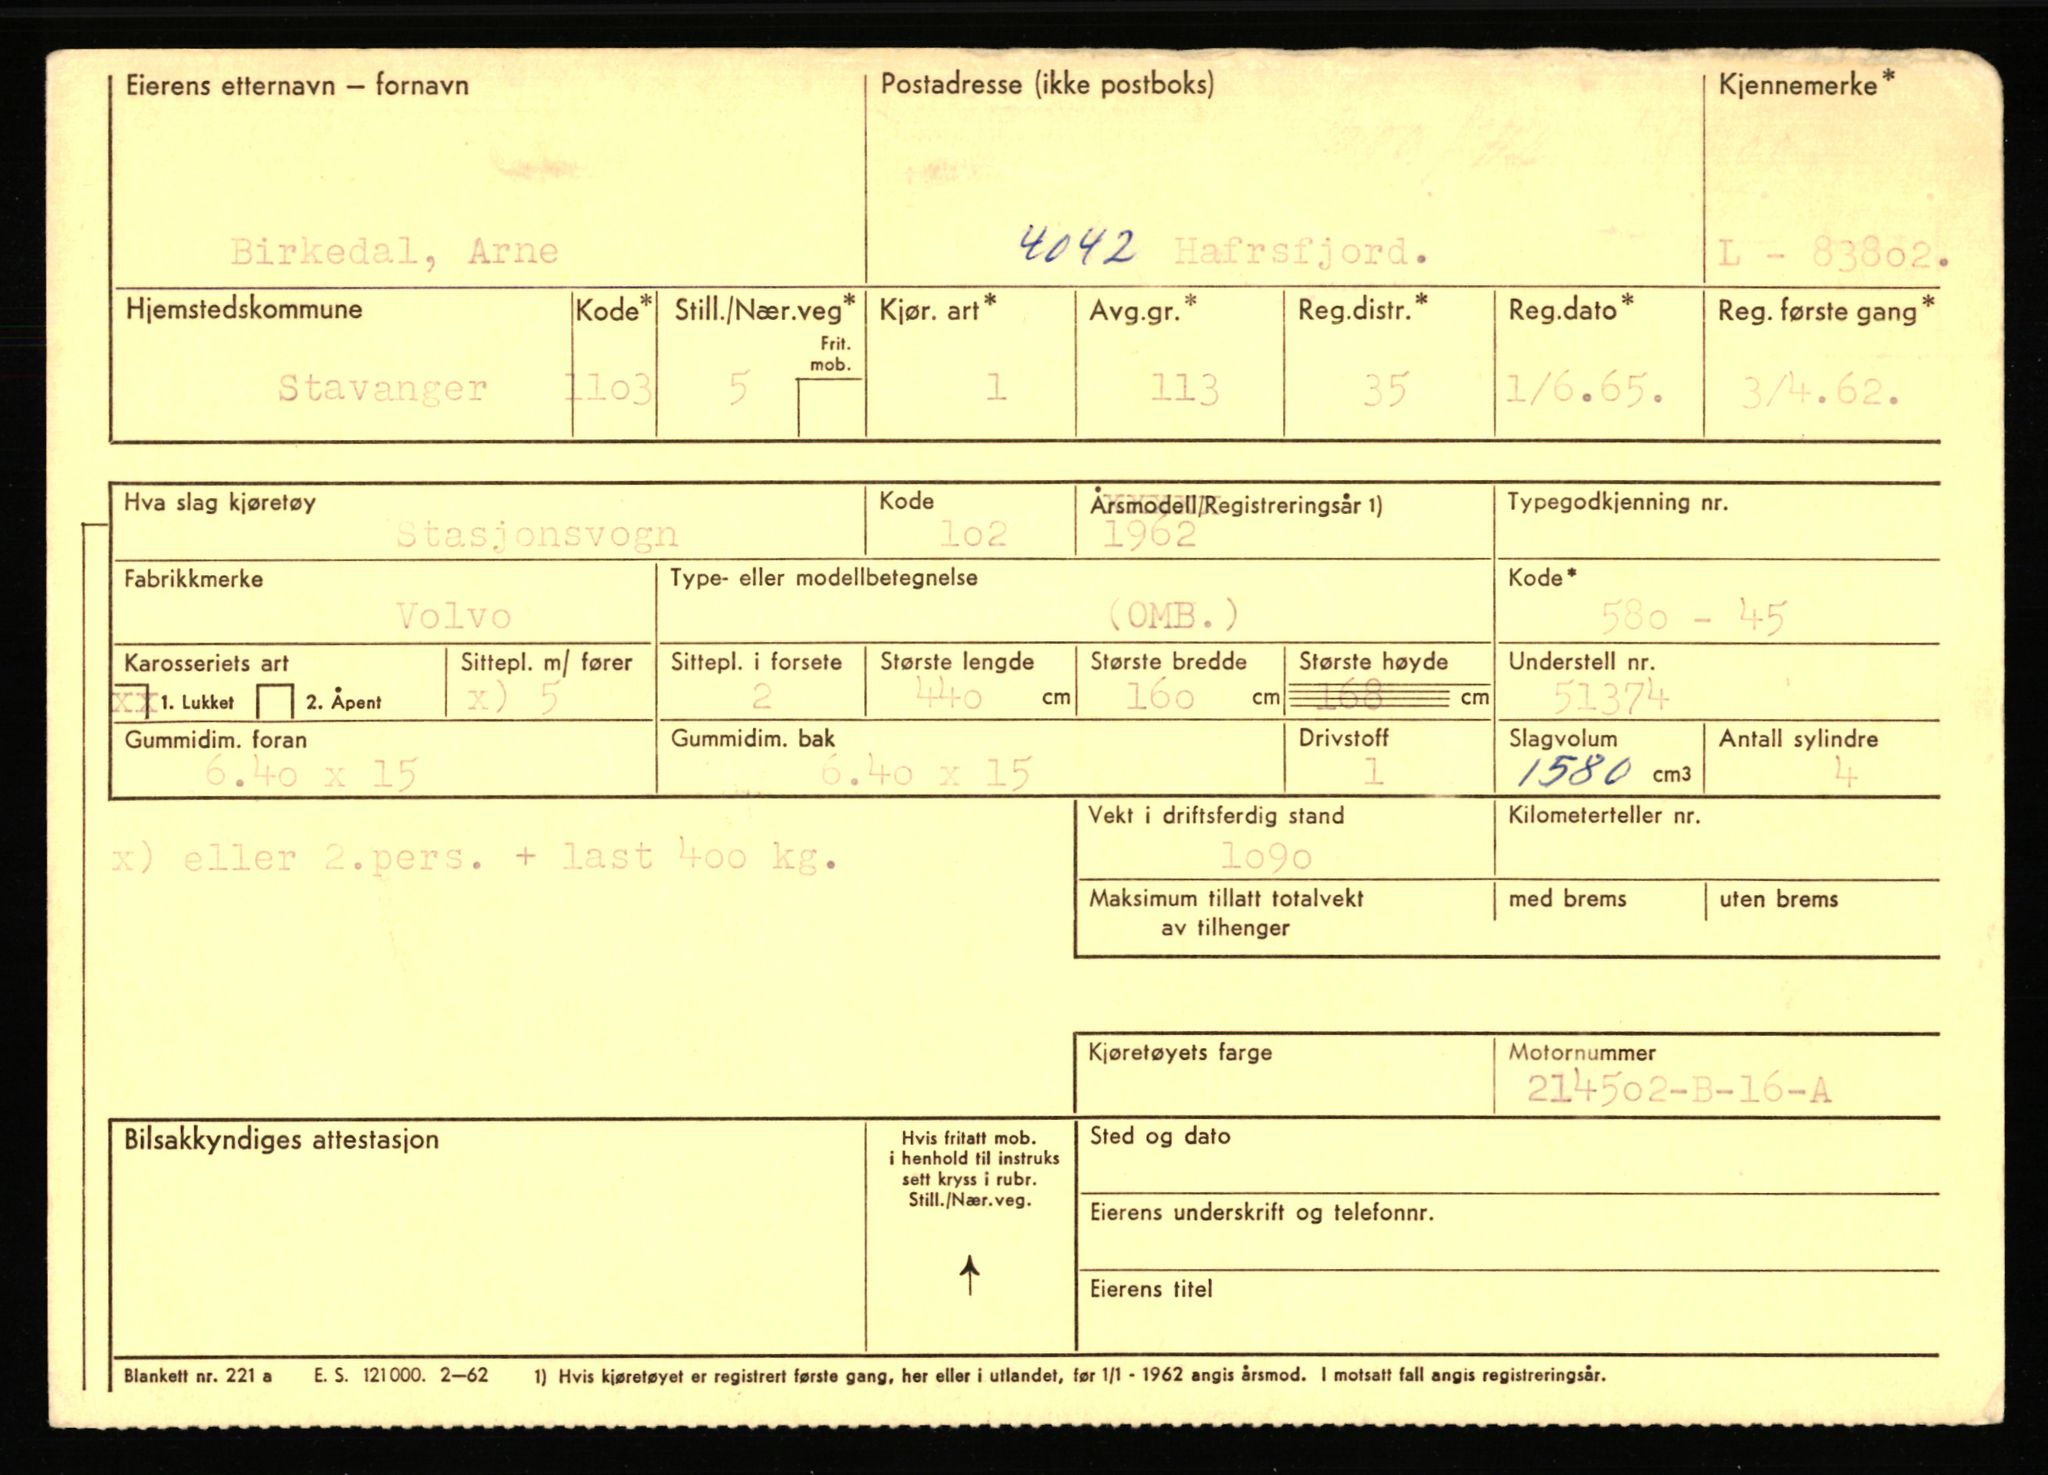 Eierens etternavn – fornavn Postadresse (ikke postboks) Kjennemerke*
Birkedal, Arne 4042 Hafrsfjord. L - 83802.
Hjemstedskommune Kode* Still./Nær.veg* Kjør. art* Avg.gr.* Reg.distr.* Reg.dato* Reg. første gang*
Frit.
mob.
Stavanger 1103 5 1 113 35 1/6.65. 3/4.62.
Hva slag kjøretøy Kode Årsmodell/Registreringsår 1) Typegodkjenning nr.
Stasjonsvogn 102 1962
Fabrikkmerke Type- eller modellbetegnelse Kode*
Volvo (OMB.) 580 - 45
Karosseriets art Sittepl. m/ fører Sittepl. i forsete Største lengde Største bredde Største høyde Understell nr.
xx 1. Lukket 2. Åpent x) 5 2 440 cm 160 cm 168 cm 51374
Gummidim. foran Gummidim. bak Drivstoff Slagvolum Antall sylindre
6.40 x 15 6.40 x 15 1 1580 cm3 4
Vekt i driftsferdig stand Kilometerteller nr.
x) eller 2.pers. + last 400 kg. 1090
Maksimum tillatt totalvekt med brems uten brems
av tilhenger
Kjøretøyets farge Motornummer
214502-B-16-A
Bilsakkyndiges attestasjon Hvis fritatt mob. Sted og dato
i henhold til instruks
sett kryss i rubr.
Still./Nær.veg.
Eierens underskrift og telefonnr.
Eierens titel
Blankett nr. 221 a E. S. 121000. 2–62 1) Hvis kjøretøyet er registrert første gang, her eller i utlandet, før 1/1 - 1962 angis årsmod. I motsatt fall angis registreringsår.